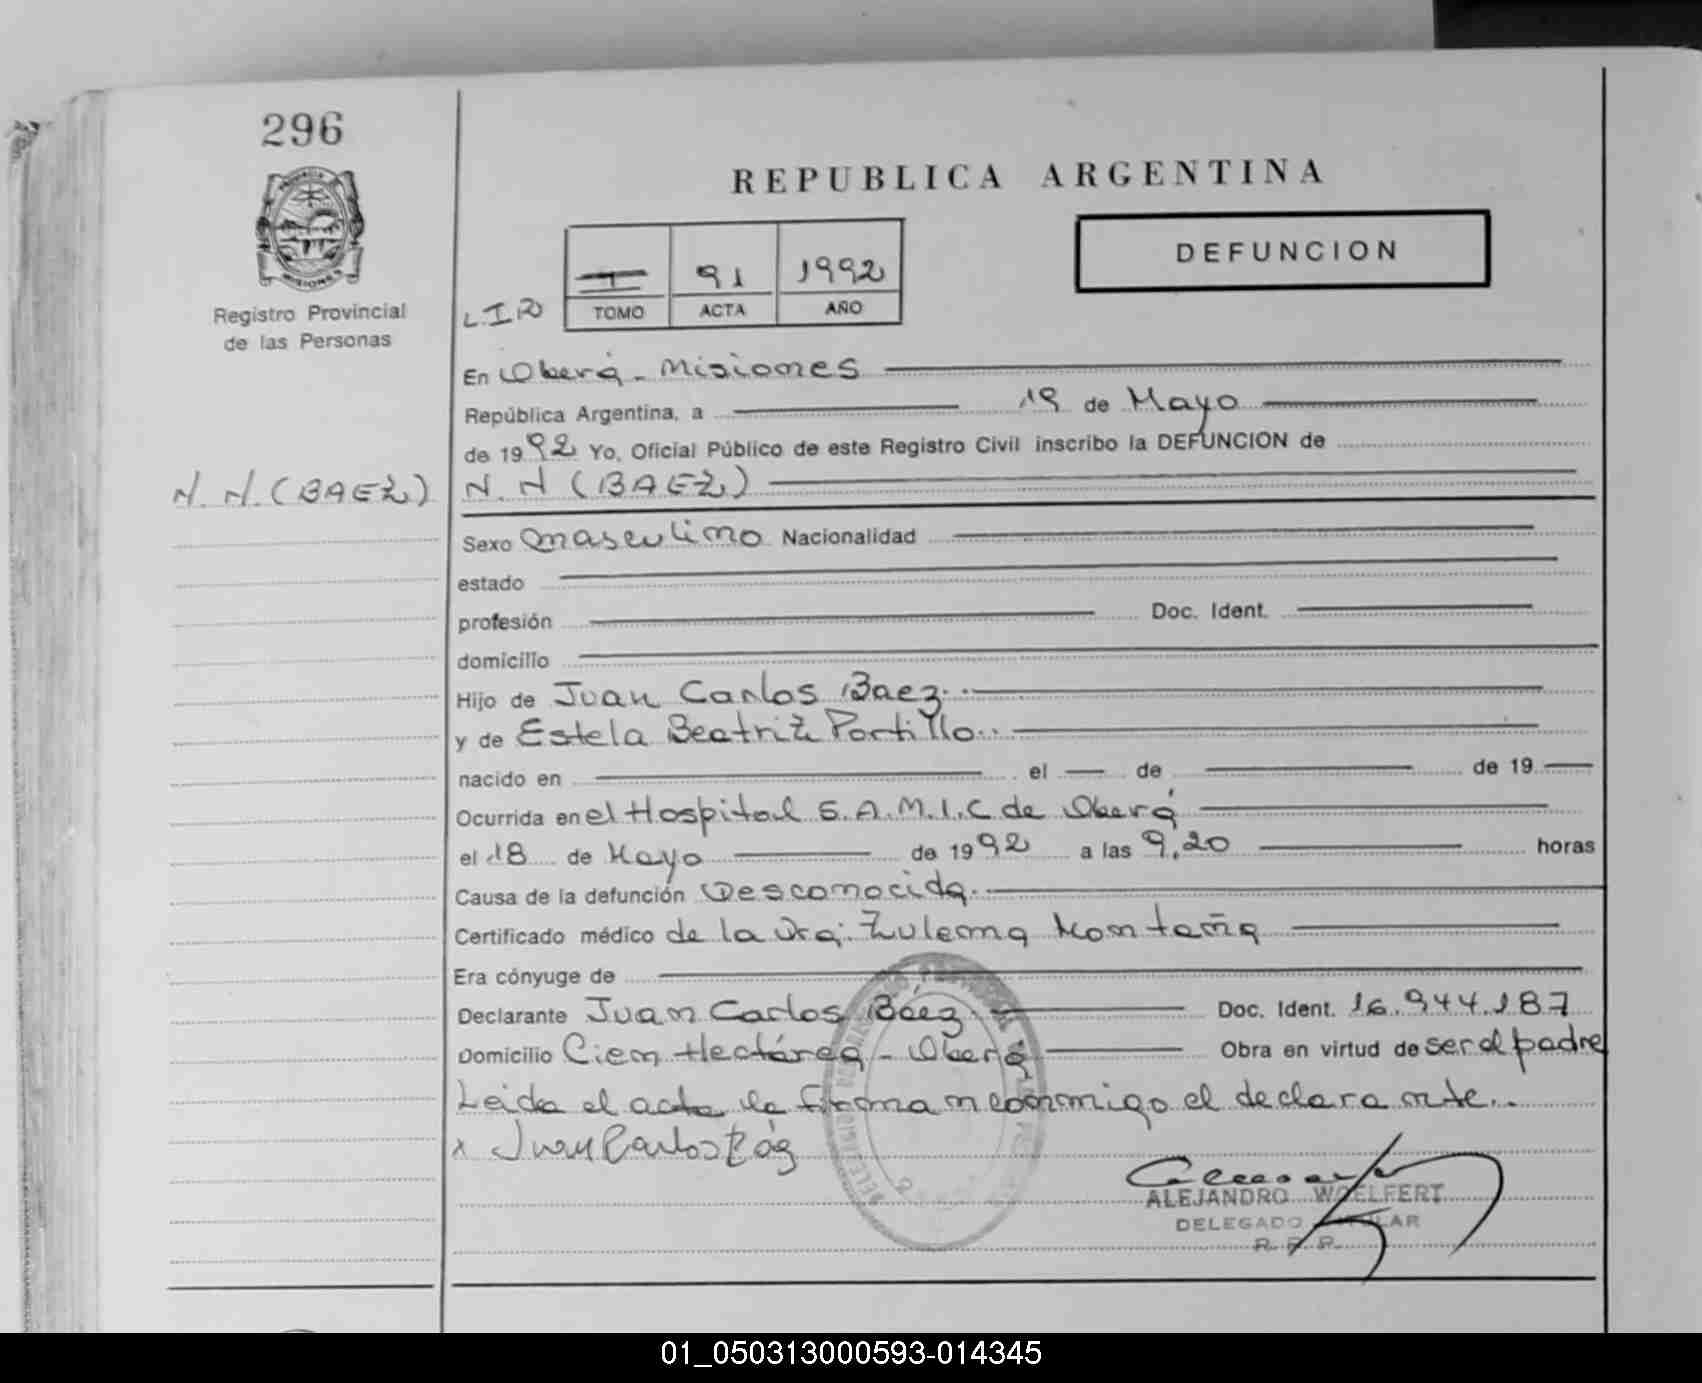 296
REPUBLICA ARGENTINA
DEFUNCION
I 91 1992
L.I.R TOMO ACTA AÑO
Registro Provincial
de las Personas
En Oberá - Misiones
República Argentina, a 19 de Mayo
de 1992 Yo, Oficial Público de este Registro Civil inscribo la DEFUNCION de
N.N.(BAEZ) N.N (BAEZ)
Sexo masculino Nacionalidad
estado
profesión Doc. Ident.
domicilio
Hijo de Juan Carlos Baez.
y de Estela Beatriz Portillo..
nacido en el de de 19
Ocurrida en el Hospital S.A.M.I.C de Oberá
el 18 de Mayo de 1992 a las 9,20 horas
Causa de la defunción Desconocida.
Certificado médico de la Dra. Zulema Montaña
Era cónyuge de
Declarante Juan Carlos Báez Doc. Ident. 16.944.187
Domicilio Cien Hectárea - Oberá Obra en virtud de ser el padre
Leida el acta la firman conmigo el declarante..
x Juan Carlos Báez
ALEJANDRO WOELFERT
DELEGADO TITULAR
R. P. P.
01_050313000593-014345